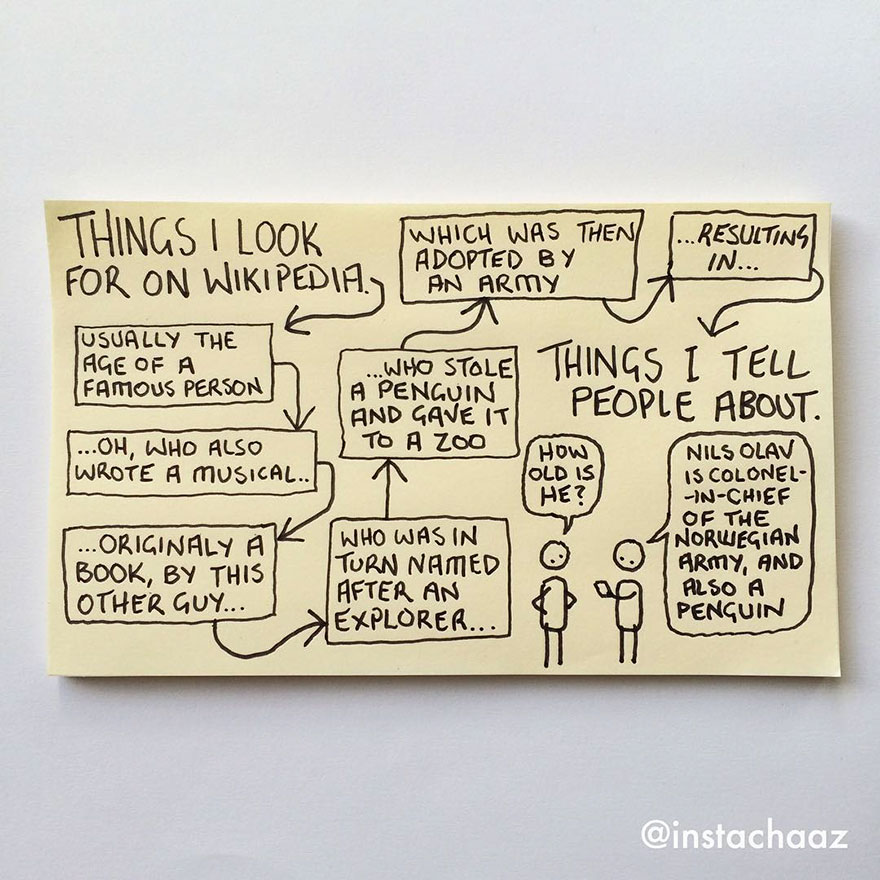 THINGS I LOOK
FOR ON WIKIPEDIA.
USUALLY THE
AGE OF A
FAMOUS PERSON
...OH, WHO ALSO
WROTE A MUSICAL..
...ORIGINALY A
BOOK, BY THIS
OTHER GUY...
WHO WAS IN
TURN NAMED
AFTER AN
EXPLORER...
...WHO STOLE
A PENGUIN
AND GAVE IT
TO A ZOO
WHICH WAS THEN
ADOPTED BY
AN ARMY
...RESULTING
IN...
THINGS I TELL
PEOPLE ABOUT.
HOW
OLD IS
HE?
NILS OLAV
IS COLONEL-
-IN-CHIEF
OF THE
NORWEGIAN
ARMY, AND
ALSO A
PENGUIN
@instachaaz